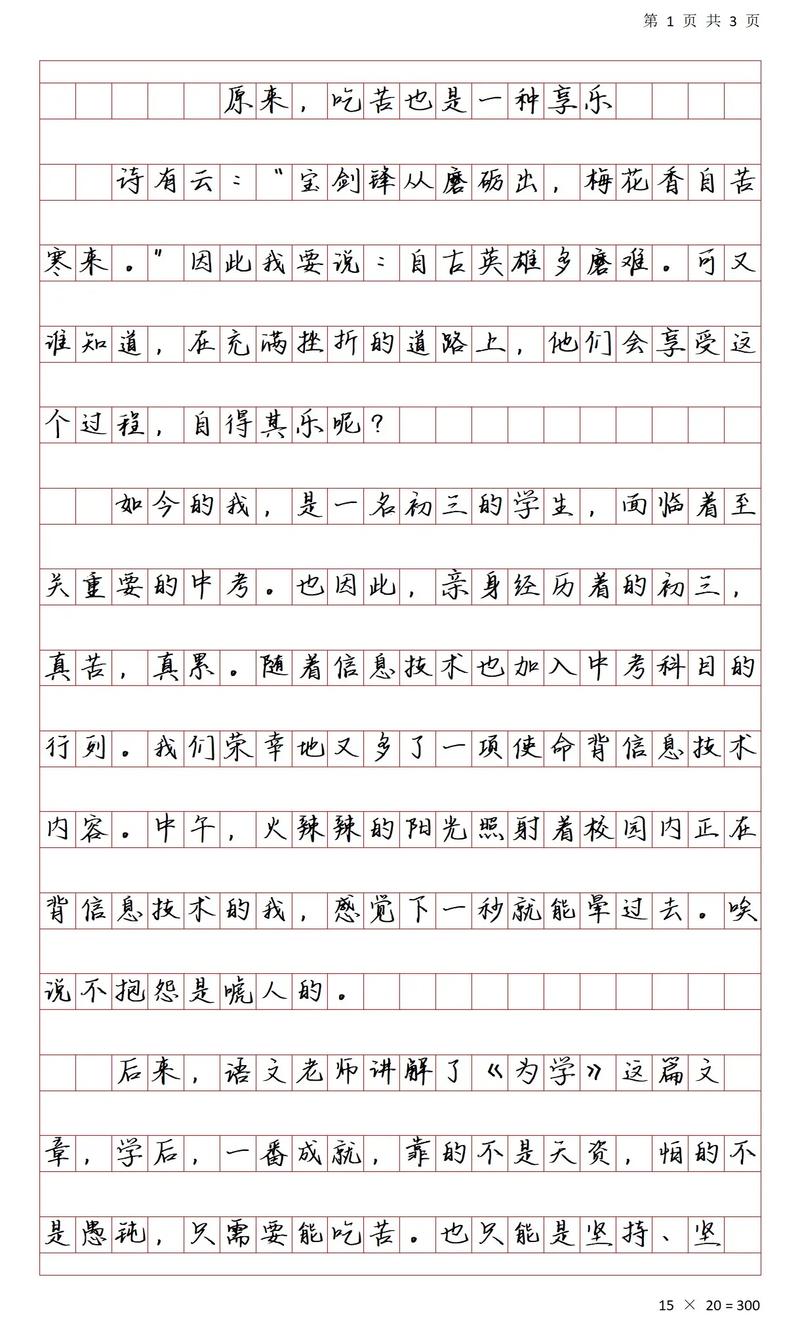 第 1 页 共 3 页
原来，吃苦也是一种享乐
诗有云：“宝剑锋从磨砺出，梅花香自苦
寒来。”因此我要说：自古英雄多磨难。可又
谁知道，在充满挫折的道路上，他们会享受这
个过程，自得其乐呢？
如今的我，是一名初三的学生，面临着至
关重要的中考。也因此，亲身经历着的初三，
真苦，真累。随着信息技术也加入中考科目的
行列。我们荣幸地又多了一项使命背信息技术
内容。中午，火辣辣的阳光照射着校园内正在
背信息技术的我，感觉下一秒就能晕过去。唉
说不抱怨是唬人的。
后来，语文老师讲解了《为学》这篇文
章，学后，一番成就，靠的不是天资，怕的不
是愚钝，只需要能吃苦。也只能是坚持、坚
15 × 20 = 300